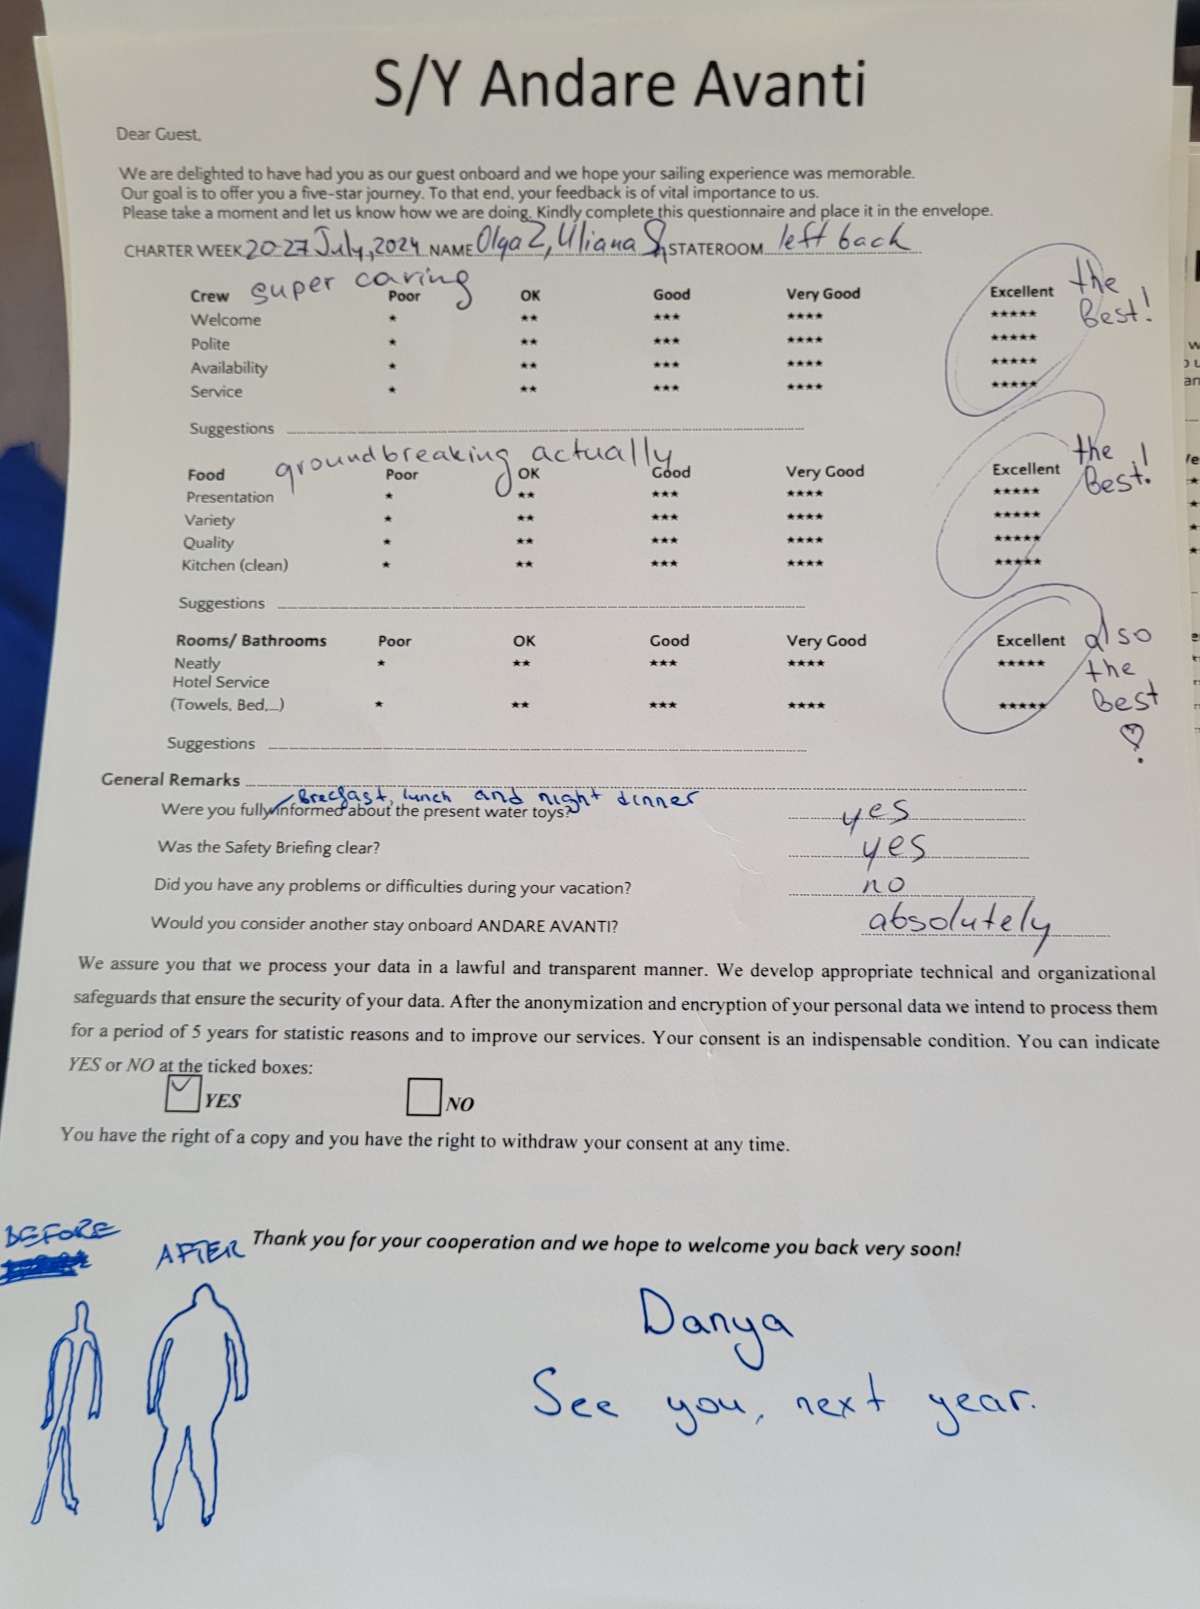 S/Y Andare Avanti
Dear Guest,
We are delighted to have had you as our guest onboard and we hope your sailing experience was memorable.
Our goal is to offer you a five-star journey. To that end, your feedback is of vital importance to us.
Please take a moment and let us know how we are doing. Kindly complete this questionnaire and place it in the envelope.
CHARTER WEEK 20-27 July, 2024 NAME Olga Z, Uliana Sh STATEROOM left back
super caring
Crew Poor OK Good Very Good Excellent the Best!
Welcome * ** *** **** *****
Polite * ** *** **** *****
Availability * ** *** **** *****
Service * ** *** **** *****
Suggestions
groundbreaking actually
Food Poor OK Good Very Good Excellent the Best!
Presentation * ** *** **** *****
Variety * ** *** **** *****
Quality * ** *** **** *****
Kitchen (clean) * ** *** **** *****
Suggestions
Rooms/ Bathrooms Poor OK Good Very Good Excellent also
Neatly * ** *** **** ***** the
Hotel Service
(Towels, Bed,...) * ** *** **** ***** Best
Suggestions
General Remarks
Brecfast, lunch and night dinner
Were you fully informed about the present water toys? yes
Was the Safety Briefing clear? yes
Did you have any problems or difficulties during your vacation? no
Would you consider another stay onboard ANDARE AVANTI? absolutely
We assure you that we process your data in a lawful and transparent manner. We develop appropriate technical and organizational
safeguards that ensure the security of your data. After the anonymization and encryption of your personal data we intend to process them
for a period of 5 years for statistic reasons and to improve our services. Your consent is an indispensable condition. You can indicate
YES or NO at the ticked boxes:
YES NO
You have the right of a copy and you have the right to withdraw your consent at any time.
BEFORE
AFTER
Thank you for your cooperation and we hope to welcome you back very soon!
Danya
See you, next year.